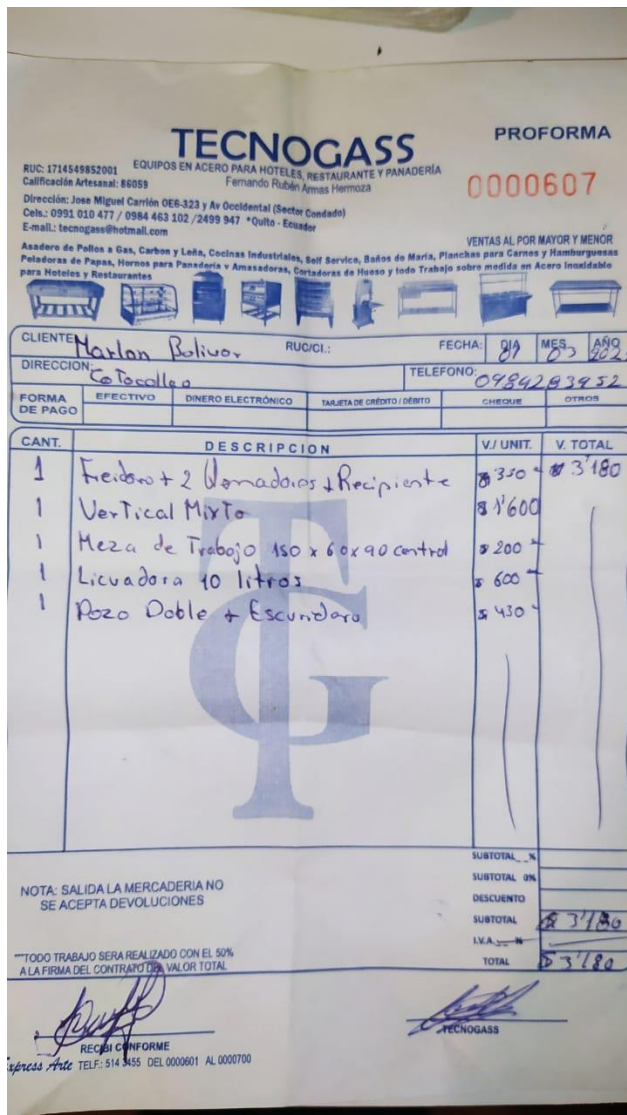 TECNOGASS
PROFORMA
RUC: 1714549852001
EQUIPOS EN ACERO PARA HOTELES, RESTAURANTE Y PANADERÍA
Calificación Artesanal: 86059
Fernando Rubén Armas Hermoza
0000607
Dirección: Jose Miguel Carrión OE6-323 y Av Occidental (Sector Condado)
Cels.: 0991 010 477 / 0984 463 102 /2499 947 *Quito - Ecuador
E-mail.: tecnogass@hotmail.com
VENTAS AL POR MAYOR Y MENOR
Asadero de Pollos a Gas, Carbon y Leña, Cocinas Industriales, Self Service, Baños de María, Planchas para Carnes y Hamburguesas
Peladoras de Papas, Hornos para Panadería y Amasadoras, Cortadoras de Hueso y todo Trabajo sobre medida en Acero Inoxidable
para Hoteles y Restaurantes
CLIENTE Marlon Bolivar RUC/CI.: FECHA: DIA MES AÑO
DIRECCION: CoTocollao TELEFONO: 0984283952
FORMA DE PAGO EFECTIVO DINERO ELECTRÓNICO TARJETA DE CRÉDITO / DÉBITO CHEQUE OTROS
CANT. DESCRIPCION V./ UNIT. V. TOTAL
1 Freidora + 2 + Recipiente $ 350 $ 3'180
1 VerTical MixTo $ 1'600
1 Meza de Trabajo 150 x 60x90 central $ 200
1 Licuadora 10 litros $ 600
1 Pozo Doble + Escurridero $ 430
SUBTOTAL %
SUBTOTAL 0%
NOTA: SALIDA LA MERCADERIA NO
SE ACEPTA DEVOLUCIONES
DESCUENTO
SUBTOTAL $ 3'180
I.V.A. %
***TODO TRABAJO SERA REALIZADO CON EL 50%
A LA FIRMA DEL CONTRATO DEL VALOR TOTAL
TOTAL $ 3'180
RECIBI CONFORME
TECNOGASS
Express Arte TELF.: 514 3455 DEL 0000601 AL 0000700